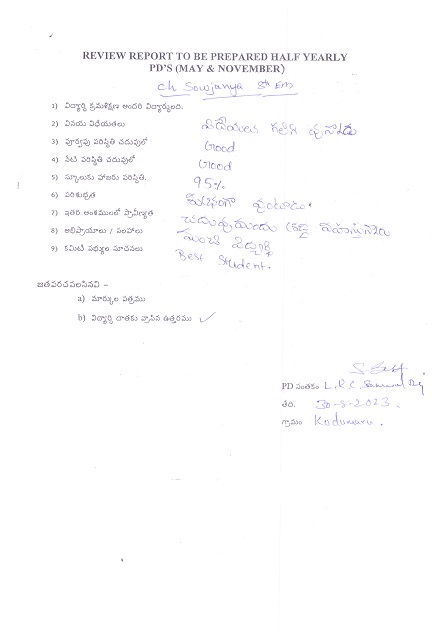 REVIEW REPORT TO BE PREPARED HALF YEARLY
PD'S (MAY & NOVEMBER)
Ch Sowjanya 8th EM
1) విద్యార్థి క్రమశిక్షణ అందరి విద్యార్థులది.
2) వినయ విధేయతలు విధేయత కలిగి వున్నాడు
3) పూర్వపు పరిస్థితి చదువులో Good
4) నేటి పరిస్థితి చదువులో Good
5) స్కూలుకు హాజరు పరిస్థితి. 95%
6) పరిశుభ్రత శుభ్రంగా వుంటాడు.
7) ఇతర అంశములలో ప్రావీణ్యత చదువు యందు శ్రద్ధ
8) అభిప్రాయాలు / సలహాలు మంచి విద్యార్థి
9) కమిటి సభ్యుల సూచనలు Best Student.
జతపరచవలసినవి –
a) మార్కుల పత్రము
b) విద్యార్థి దాతకు వ్రాసిన ఉత్తరము ✓
PD సంతకం L.R.C.
తేది. 30-8-2023.
గ్రామం Kodumuru.